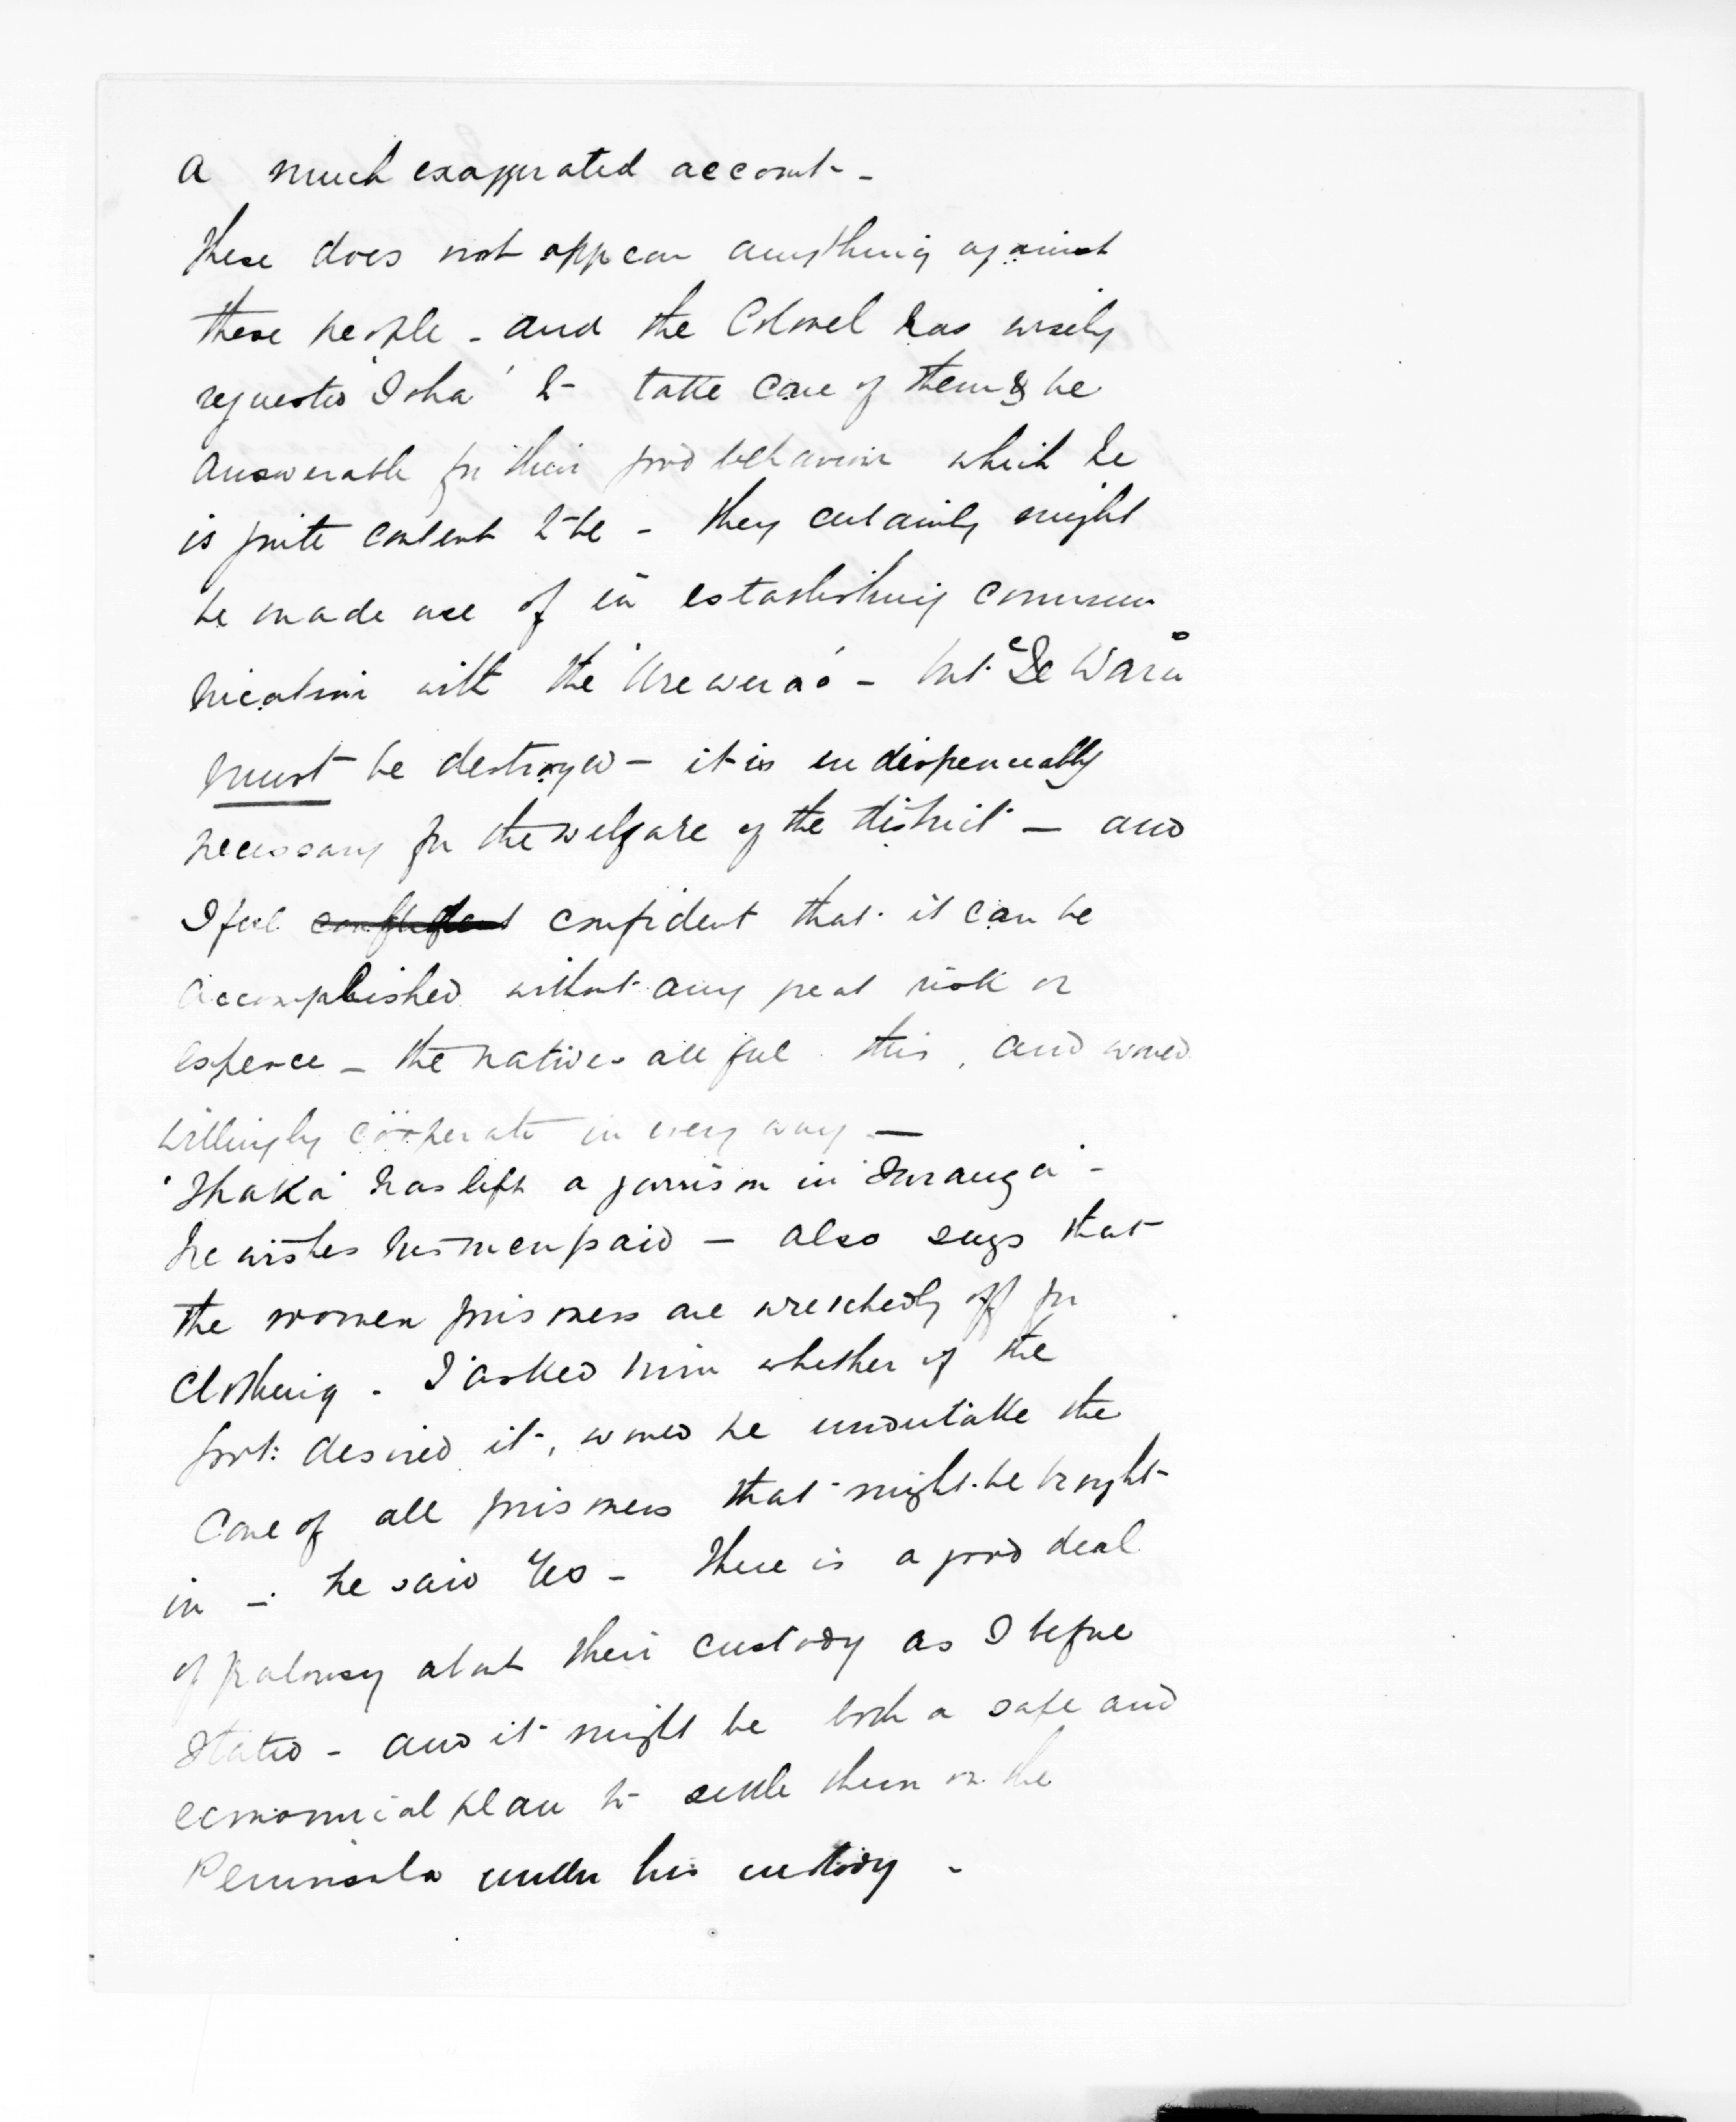 a much exaggerated account -
There does not appear anything against
these people - and the Colonel has wisely
requested 'Ioha' to take care of them & be
answerable for their good behavior which he
is quite content to be - They certainly might
be made use of in establishing commu
nication with the 'Urewera's' - but 'Te Waru'
must be destroyed - it is indispensably
necessary for the welfare of the district - and
I feel confident that it can be
accomplished without any great risk or
expence - the natives all feel this, and would
willingly cöoperate in every way -
'Ihaka' has left a garrison in 'Turanga' -
he wishes his men paid - also says that
the women prisoners are wretchedly off for
clothing - I asked him whether if the
Govt: desired it, would he undertake the
care of all prisoners that might be brought
in - he said Yes - There is a good deal
of jealousy about their custody as I before
stated - and it might be both a safe and
economical plan to settle them on the
Peninsula under his custody -